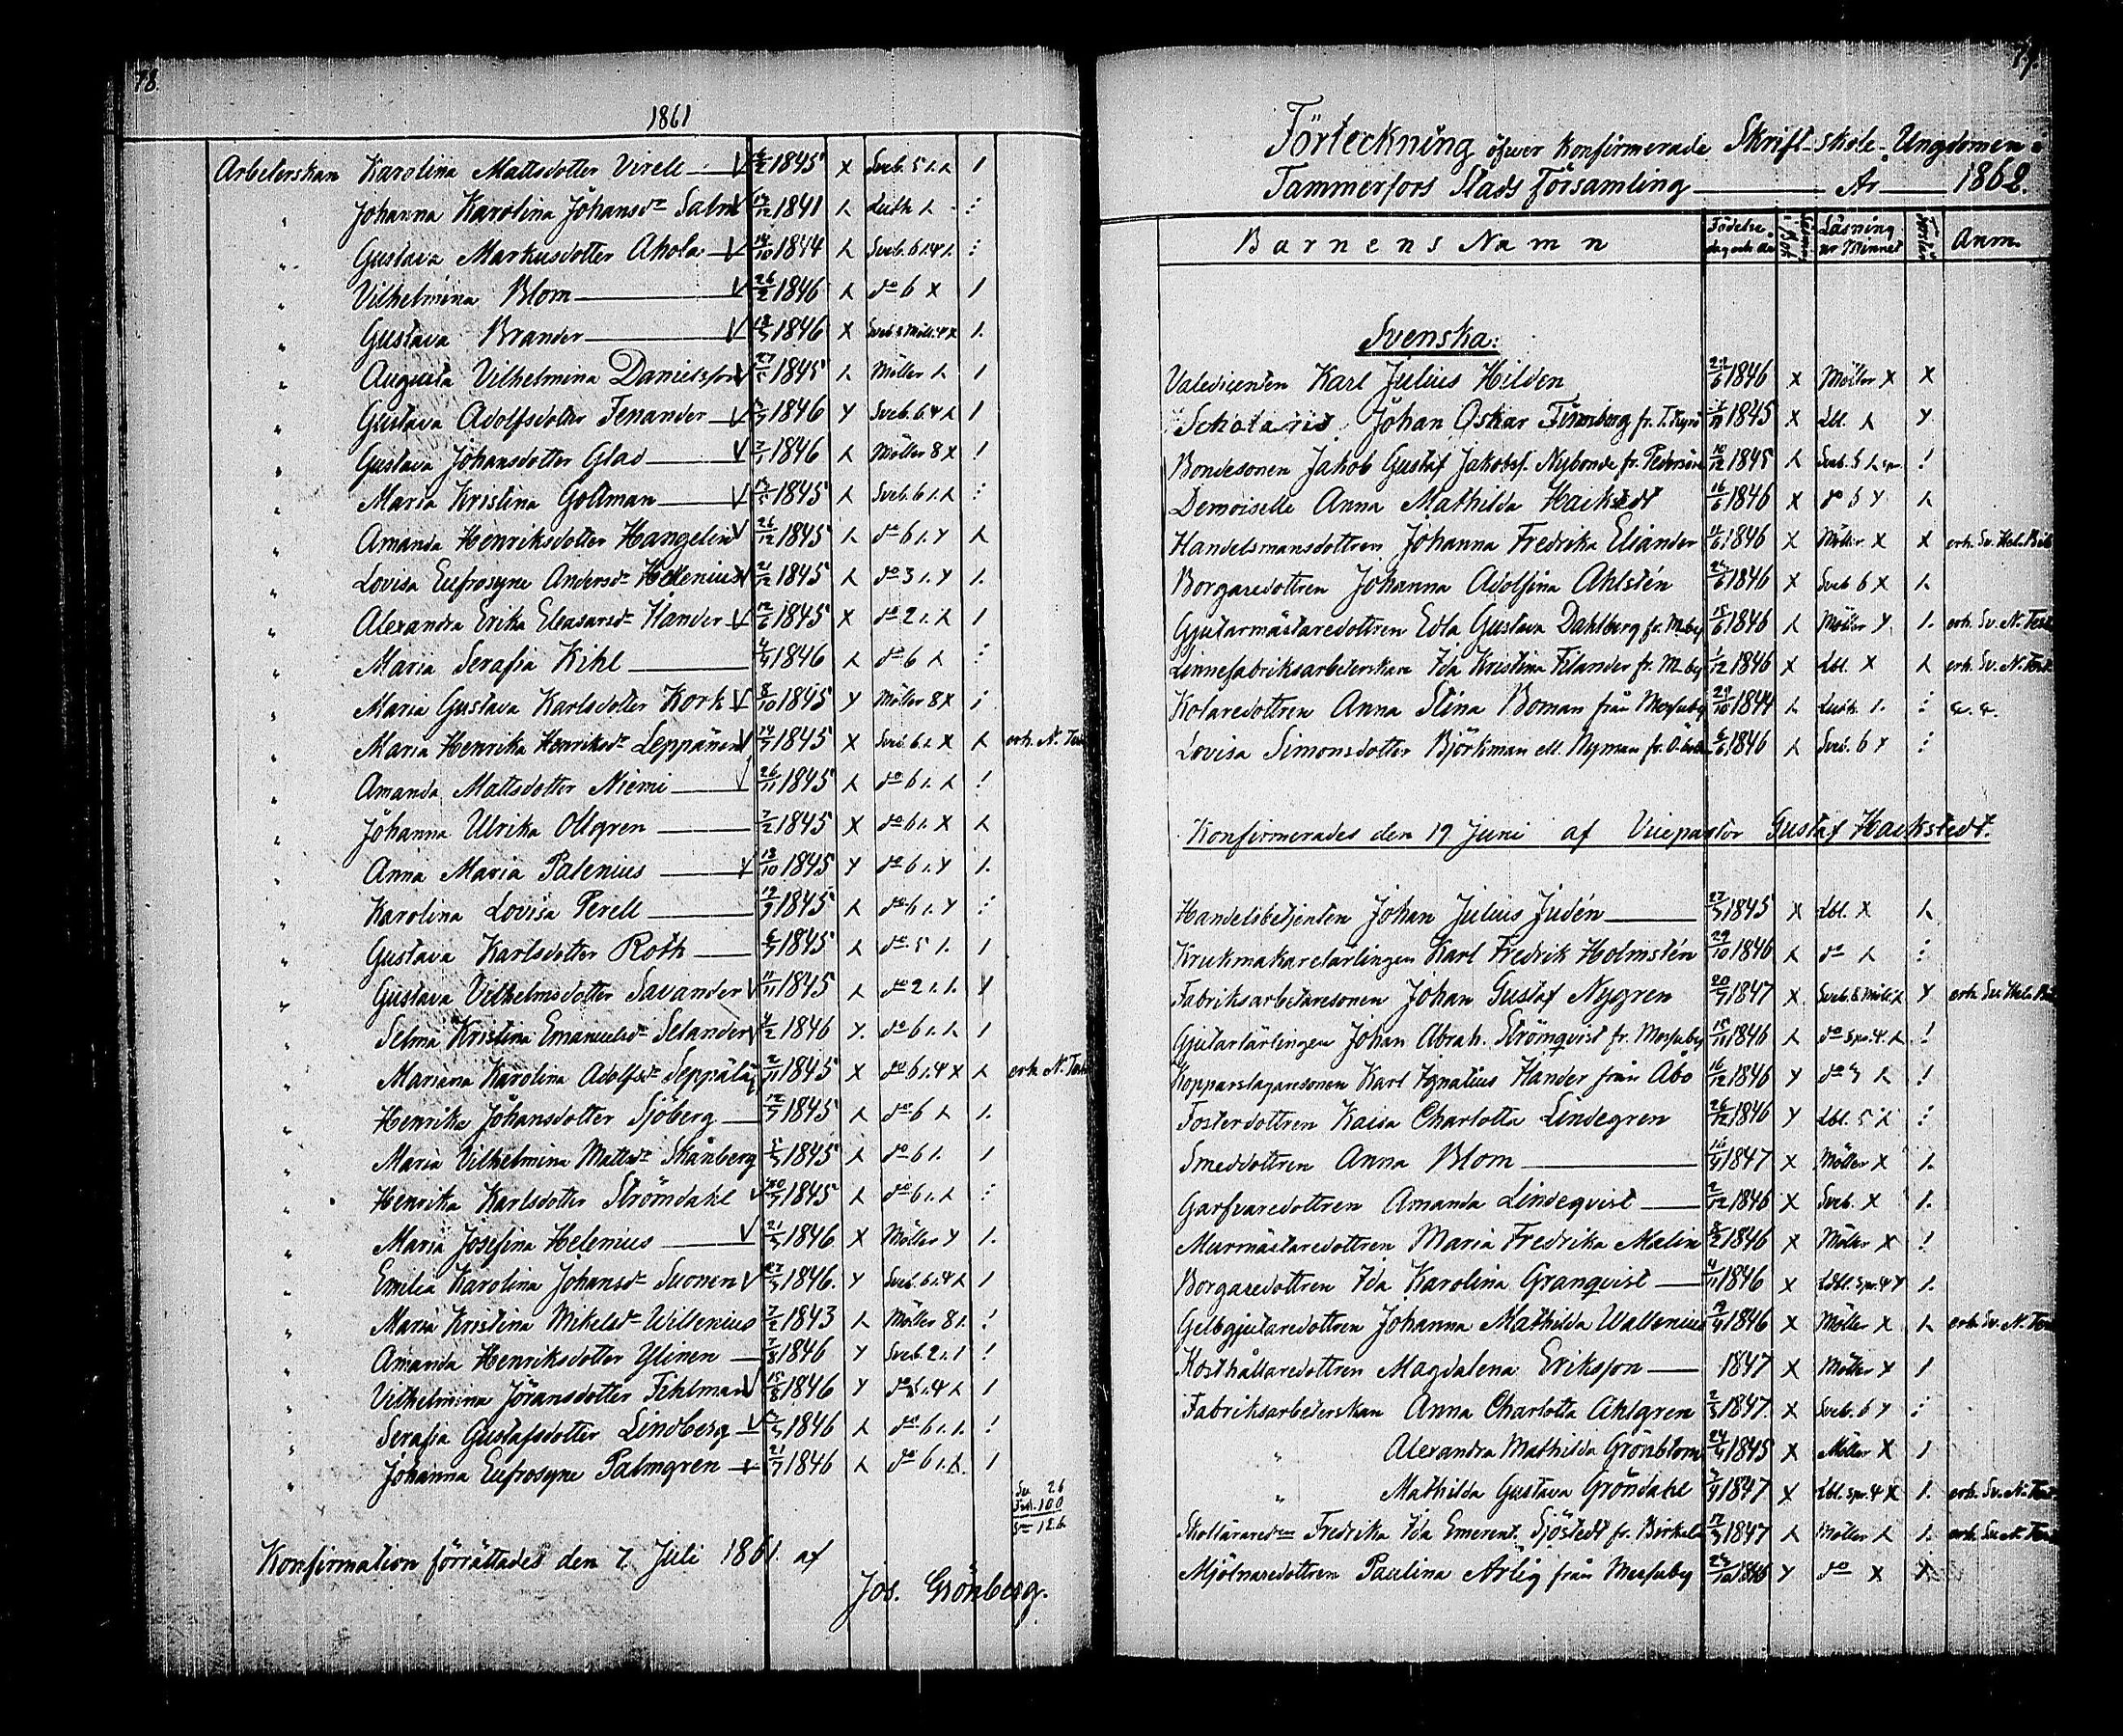 78.
1861
Arbeterskan Karolina Mattsdotter Virell 1845 x Sveb. 5 1. 1
" Johanna Karolina Johansdr Salm 1841 Luth.
" Gustava Markusdotter Ahola 14/10 1844 Sveb. 6 1.4 1.
" Vilhelmina Blom 26/2 1846 do 6 x 1
" Gustava Brander 1846 x Sveb. Möll. 4 x 1.
" Augusta Vilhelmina Danielsson 1845 Möller 1
" Gustava Adolfsdotter Fenander 1846 Sveb. 6.4 1
" Gustava Johansdotter Glad 1846 Möller 8 x !
" Maria Kristina Gottman 1845 Sveb. 6 1.
" Amanda Henriksdotter Hangelin 26/12 1845 do 6 1. y
" Lovisa Eufrosyne Andersdr Helenius 21/12 1845 do 3 1. y 1.
" Alexandra Erika Eleasarsdr Hander 1845 x do 2 1. 1
" Maria Serafia Kihl 1846 do 6
" Maria Gustava Karlsdotter Kork 8/10 1845 y Möller 8 x
" Maria Henrika Henriksdr Leppänen 1845 x Sveb. 6 1. x erh. N. Test
" Amanda Mattsdotter Niemi 26/11 1845 do 6 1. !
" Johanna Ulrika Ollgren 7/2 1845 x do 6 1. x
" Anna Maria Palenius 13/10 1845 y do 6 1. y 1.
" Karolina Lovisa Perell 1845 do 6 1. y
" Gustava Karlsdotter Roth 1845 do 5 1. 1
" Gustava Vilhelmsdotter Savander 11/11 1845 do 2 1. 1. 1
" Selma Kristina Emanuelsdr Selander 4/2 1846 y. do 6 1. 1
" Mariana Karolina Adolfsdr Seppälä 2/11 1845 x do 6 1.4 x erh N. Test
" Henrika Johansdotter Sjöberg 1845 do 6 1.
" Maria Vilhelmina Mattsdr Skånberg 1845 do 6 1. 1
" Henrika Karlsdotter Strömdahl 1845 do 6 1.
" Maria Josefina Helenius 21/3 1846 x Möller y 1.
" Emilia Karolina Johansdr Suonen 27/3 1846. y Sveb. 6 1.4 1
" Maria Kristina Mikelsdr Willenius 7/2 1843 Möller 8 1. !
" Amanda Henriksdotter Ylinen 7/8 1846 y Sveb. 2 1. 1 !
" Vilhelmina Jöransdotter Fihlman 15/8 1846 y 1.4 1
" Serafia Gustafsdotter Lindberg 1846 do 6 1. 1. !
" Johanna Eufrosyne Palmgren 21/7 1846 do 6 1. 1
Sv. 26
100
S= 126
Konfirmation förrättades den 7. Juli 1861. af
Jos. Grönberg.
79.
Förteckning öfver konfirmerade Skrift-skole-Ungdomen i
Tammerfors Stads Församling År 1862.
Barnens Namn Födelse dag och år i Bok Läsning ur Minnet Förstår Anm.
Svenska:
Valedicenten Karl Julius Hilden 1846 x Möller x x
Scholaris Johan Oskar fr. 1845 x Lbl. y
Bondesonen Jakob Gustaf Jakobss. Nybonde fr. Pedersöre 10/12 1845 Sveb. 5 spr. !
Demoiselle Anna Mathilda Hackstedt 16/6 1846 x do 6 y
Handelsmansdottren Johanna Fredrika Eliander 1846 x Möller x x erh. Sv. Hel. Bib
Borgaredottren Johanna Adolfina Ahlstén 1846 x Sveb 6 x
Gjutarmästaredottren Edla Gustava Dahlberg fr. M.by 15/6 1846 Möller y 1. erh. Sv. N. Test
Linnefabriksarbeterskan Ida Kristina Filander fr. M.by 1/12 1846 x Lbl. x erh. Sv. N. Test
Kolaredottren Anna Stina Boman från Messuby 29/10 1844 Luth. 1.
Lovisa Simonsdotter Björkman ell. Nyman fr. 6/6 1846 Sveb. 6 y
Konfirmerades den 19 Juni af Vicepastor Gustaf Hackstedt.
Handelsbetjenten Johan Julius Judén 1845 x Lbl. x
Krukmakarelärlingen Karl Fredrik Holmstén 29/10 1846 do
Fabriksarbetaresonen Johan Gustaf Nygren 1847 x Sveb. 6 Möll. y erh. Sv. Hel. Bib
Gjutarlärlingen Johan Abrah. Strömqvist fr. Messuby 15/11 1846 do spr. 4. !
Kopparslagaresonen Karl Ignatius Hander från Åbo 16/12 1846 y do !
Fosterdottren Kaisa Charlotta Lindegren 26/12 1846 y Lbl. 5
Smeddottren Anna Blom 1847 x Möller x 1.
Garfvaredottren Amanda Lindeqvist 2/12 1846 x Sveb. x 1.
Murmästaredottren Maria Fredrika Malin 1846 x Möller x !
Borgaredottren Ida Karolina Granqvist 4/11 1846 x Lbl. spr. 4 y 1.
Gelbgjutaredottren Johanna Mathilda Wallenius 1846 x Möller x erh. Sv. N. Test
Kosthållaredottren Magdalena Eriksson 1847 x Möller y 1
Fabriksarbeterskan Anna Charlotta Ahlgren 2/3 1847. x Sveb. 6 y
" Alexandra Mathilda Grönblom 1845 x Möller x 1
" Mathilda Gustava Gröndahl 1847 x Lbl. spr. 4 x 1. erh. Sv. N. Test
Skollärared:n Fredrika Ida Emerent. Sjöstedt fr. Birkala 1847 Möller 1. erh. Sv. N. Test
Mjölnaredottren Paulina Arlig från Messuby 1846 y do x